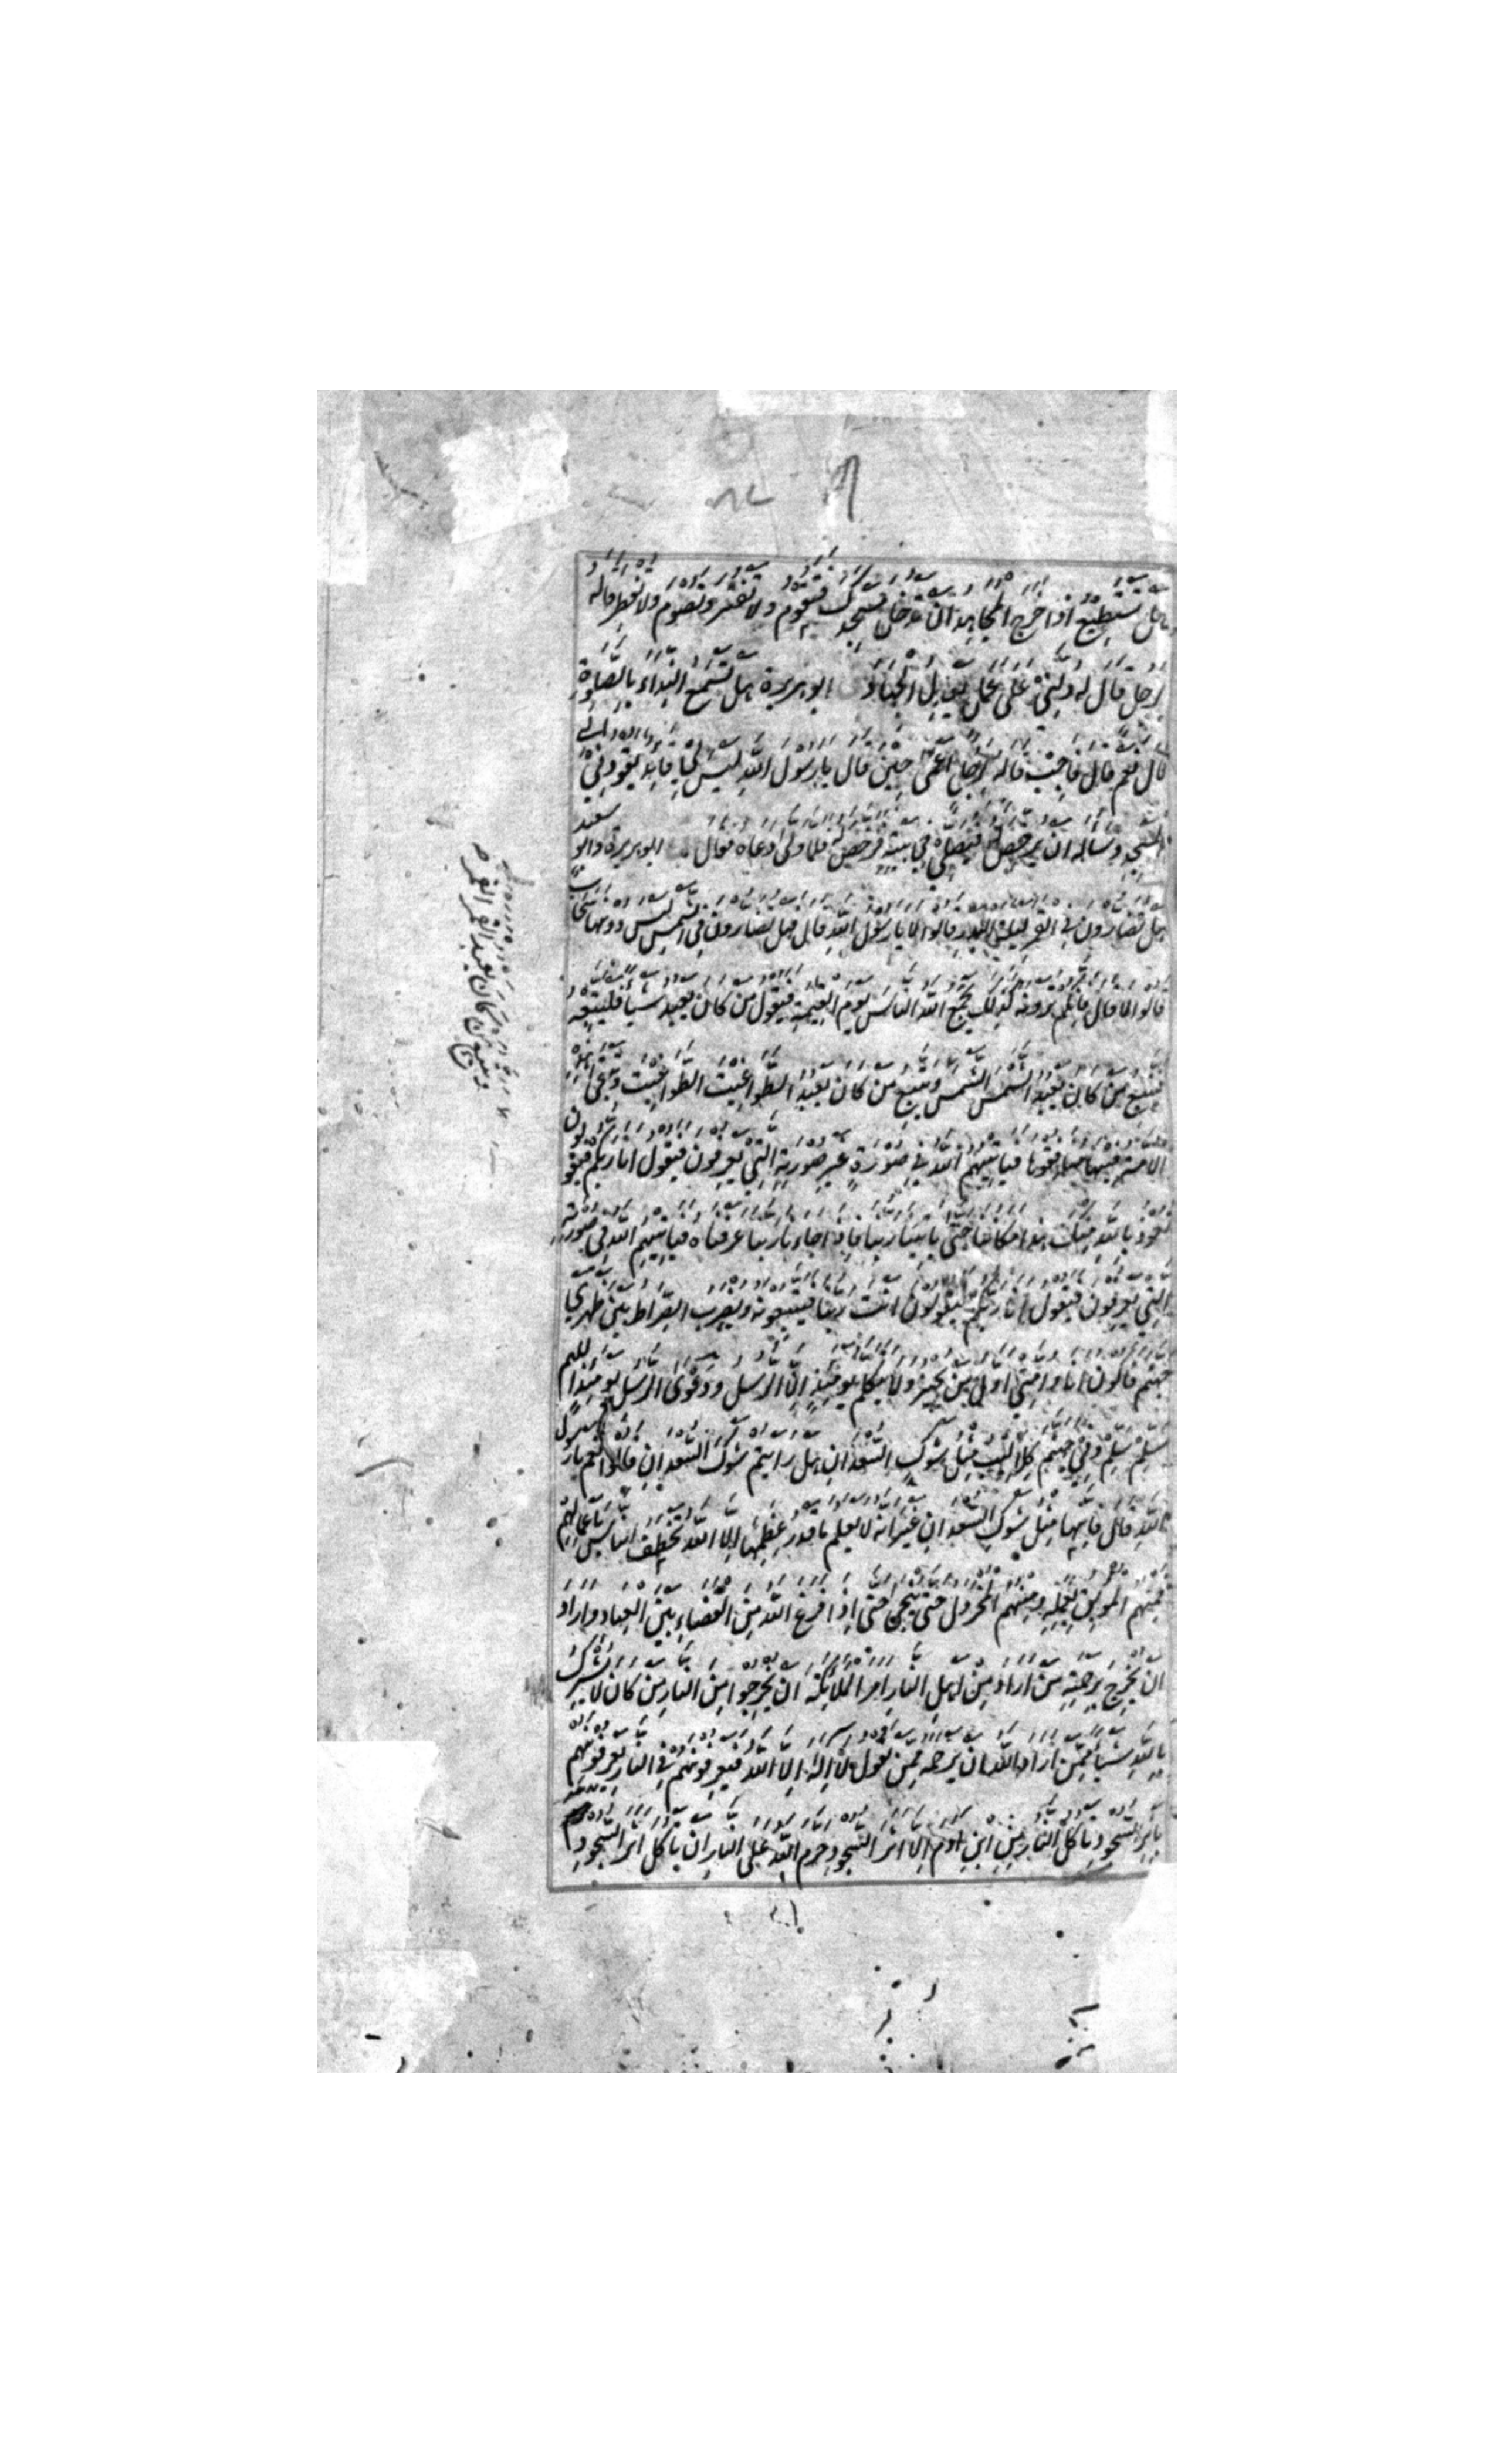 هل تستطيع اذا خرج المجاهد ان تدخل مسجدك فتقوم ولا تفتر وتصوم ولا تفطر قاله
لرجل قال له دلني على عمل يعدل الجهاد ابو هريرة هل تسمع النداء بالصلوة
قال نعم قال فاجب قاله لرجل اعمى حين قال يا رسول الله ليس لي قايد يقودني الى
المسجد وساله ان يرخص له فيصلي في بيته فرخص له فلما ولى دعاه فقال ابو هريرة وابو سعيد
هل تضارون في القمر ليلة البدر قالوا لا يا رسول الله قال فهل تضارون في الشمس ليس دونها سحاب
قالوا لا قال فانكم ترونه كذلك يجمع الله الناس يوم القيمة فيقول من كان يعبد شيأ فليتبعه
فيتبع من كان يعبد الشمس الشمس ويتبع من كان يعبد الطواغيت الطواغيت وتبقى هذه
الامة فيها منافقوها فياتيهم الله في صورة غير صورته التي يعرفون فيقول انا ربكم فيقولون
نعوذ بالله منك هذا مكاننا حتى ياتينا ربنا فاذا جاء ربنا عرفناه فياتيهم الله في صورته
التي يعرفون فيقول انا ربكم فيقولون انت ربنا فيتبعونه ويضرب الصراط بين ظهري
جهنم فاكون انا وامتي اول من يجيز ولا يتكلم يومئذ الا الرسل ودعوى الرسل يومئذ اللهم
سلم سلم وفي جهنم كلاليب مثل شوك السعدان هل رايتم شوك السعدان قالوا نعم يا رسول
الله قال فانها مثل شوك السعدان غير انه لا يعلم ما قدر عظمها الا الله تخطف الناس باعمالهم
فمنهم الموبق بعمله ومنهم المخردل حتى ينجى حتى اذا فرغ الله من القضاء بين العباد واراد
ان يخرج برحمته من اراد من اهل النار امر الملائكة ان يخرجوا من النار من كان لا يشرك
بالله شيأ ممن اراد الله ان يرحمه ممن يقول لا اله الا الله فيعرفونهم في النار يعرفونهم
باثر السجود تاكل النار من ابن ادم الا اثر السجود حرم الله على النار ان تاكل اثر السجود
ويتبع من كان يعبد القمر القمر